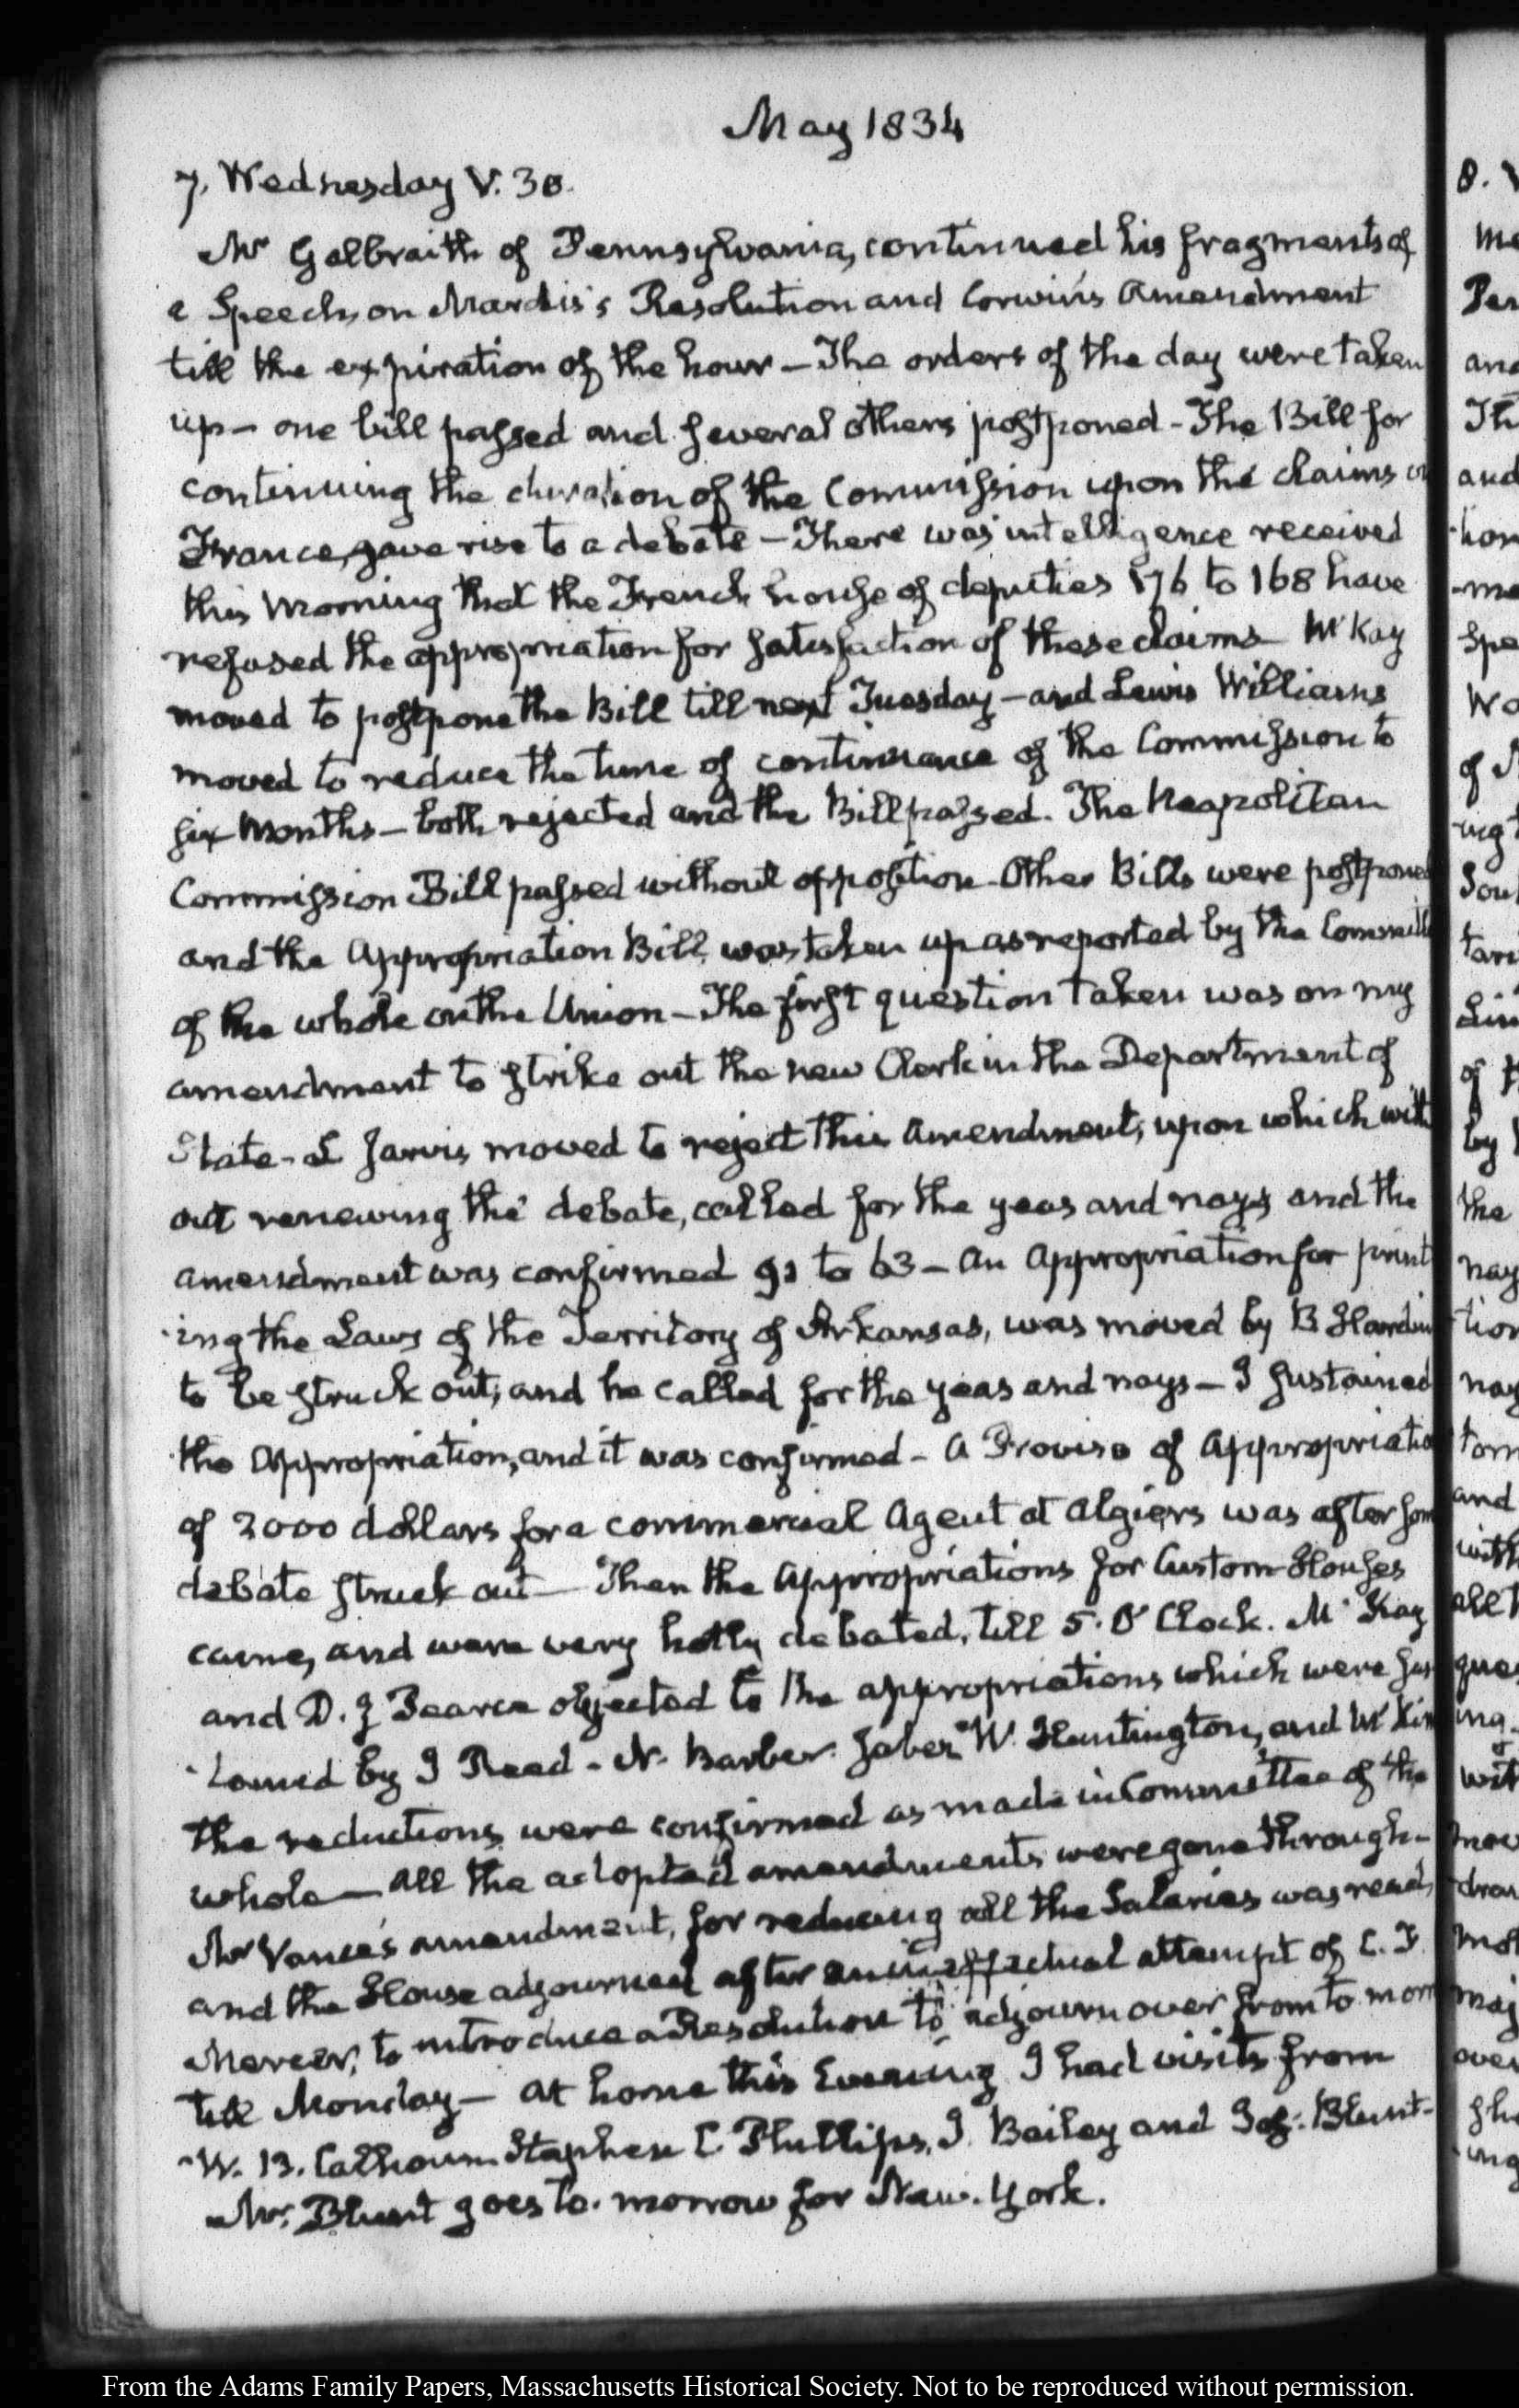 May 1834
7. Wednesday V. 30.
Mr Galbraith of Pennsylvania, continued his fragments of
a Speech, on Mardis's Resolution and Corwin's Amendment
till the expiration of the hour – The orders of the day were taken
up – one bill passed and several others postponed – The Bill for
continuing the duration of the Commission upon the claims on
France, gave rise to a debate – There was intelligence received
this Morning that the French house of deputies 176 to 168 have
refused the appropriation for satisfaction of these claims – McKay
moved to postpone the Bill till next Tuesday – and Lewis Williams
moved to reduce the time of continuance of the Commission to
six Months – both rejected and the Bill passed. The Neapolitan
Commission Bill passed without opposition – Other Bills were postponed
and the Appropriation Bill, was taken up as reported by the Committ
of the whole on the Union – The first question taken was on my
amendment to strike out the new Clerk in the Department of
State – L Jarvis moved to reject this Amendment, upon which with
out renewing the debate, called for the yeas and nays and the
amendment was confirmed 91 to 63 – An Appropriation for print
ing the Laws of the Territory of Arkansas, was moved by B Hardin
to be struck out; and he called for the yeas and nays – I sustained
the Appropriation, and it was confirmed – A Proviso of Appropriatio
of 2000 dollars for a commercial Agent at Algiers was after som
debate struck out – Then the Appropriations for Custom-Houses
came, and were very hotly debated, till 5. O'Clock. McKay
and D. J Pearce objected to the appropriations which were sus
tained by J Reed – N. Barber. Jabez W. Huntington, and McKim
the reductions were confirmed as made in Committee of the
whole – All the adopted amendments were gone through –
Mr Vance's amendment, for reducing all the Salaries was read,
and the House adjourned after an ineffectual attempt of C. F.
Mercer, to introduce a Resolution to adjourn over from to morr
till Monday – At home this Evening I had visits from
W. B. Calhoun. Stephen C Phillips, J. Bailey and Jos: Blunt –
Mr. Blunt goes to-morrow for New-York.
From the Adams Family Papers, Massachusetts Historical Society. Not to be reproduced without permission.